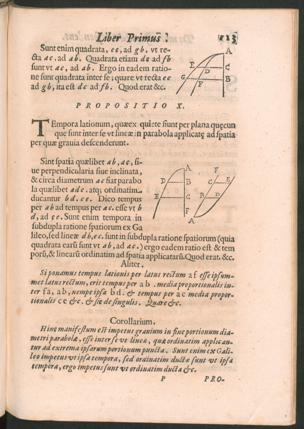 Liber Primus. 113
Sunt enim quadrata, ec, ad gb. vt re-
cta ac. ad ab. Quadrata etiam de ad fb
sunt vt ac, ad ab. Ergo in eadem ratio-
ne sunt quadrata inter se; quare vt recta ec
ad gb, ita est dc ad fb. Quod erat &c.
PROPOSITIO X.
Tempora lationum, quæ ex quiete fiunt per plana quęcun
que sunt inter se vt lineæ in parabola applicatę ad spatia
per quæ grauia descenderunt.
Sint spatia quælibet ab, ac, si-
ue perpendicularia siue inclinata,
& circa diametrum ac fiat parabo
la quælibet ade. atq; ordinatim
ducantur bd. ce. Dico tempus
per ab ad tempus per ac. esse vt b
d, ad ce. Sunt enim tempora in
subdupla ratione spatiorum ex Ga
lileo, sed lineæ db, ec. sunt in subdupla ratione spatiorum (quia
quadrata earũ sunt vt ab, ad ac,) ergo eadem ratio est & tem
porũ, & linearũ ordinatim ad spatia applicatarũ. Quod erat. &c.
Aliter.
Si ponamus tempus lationis per latus rectum af esse ipsum-
met latus rectum, erit tempus per ab. media proportionalis in-
ter fa, ab, nempe ipsa bd. & tempus per ac media propor-
tionalis ce &c. & sic de singulis. Quare &c.
Corollarium.
Hinc manifestum est impetus grauium in fine portionum dia-
metri parabolæ, esse inter se vt lineæ, quæ ordinatim applican-
tur ad extrema ipsarum portionum puncta. Sunt enim ex Gali-
leo impetus vt ipsa tempora, sed ordinatim ductæ sunt vt ipsa
tempora, ergo impetus sunt vt ordinatim ductæ &c.
P PRO-